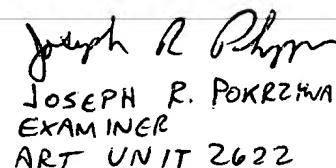 Joseph R
JOSEPH R. POKRZYWA
EXAMINER
ART UNIT 2622